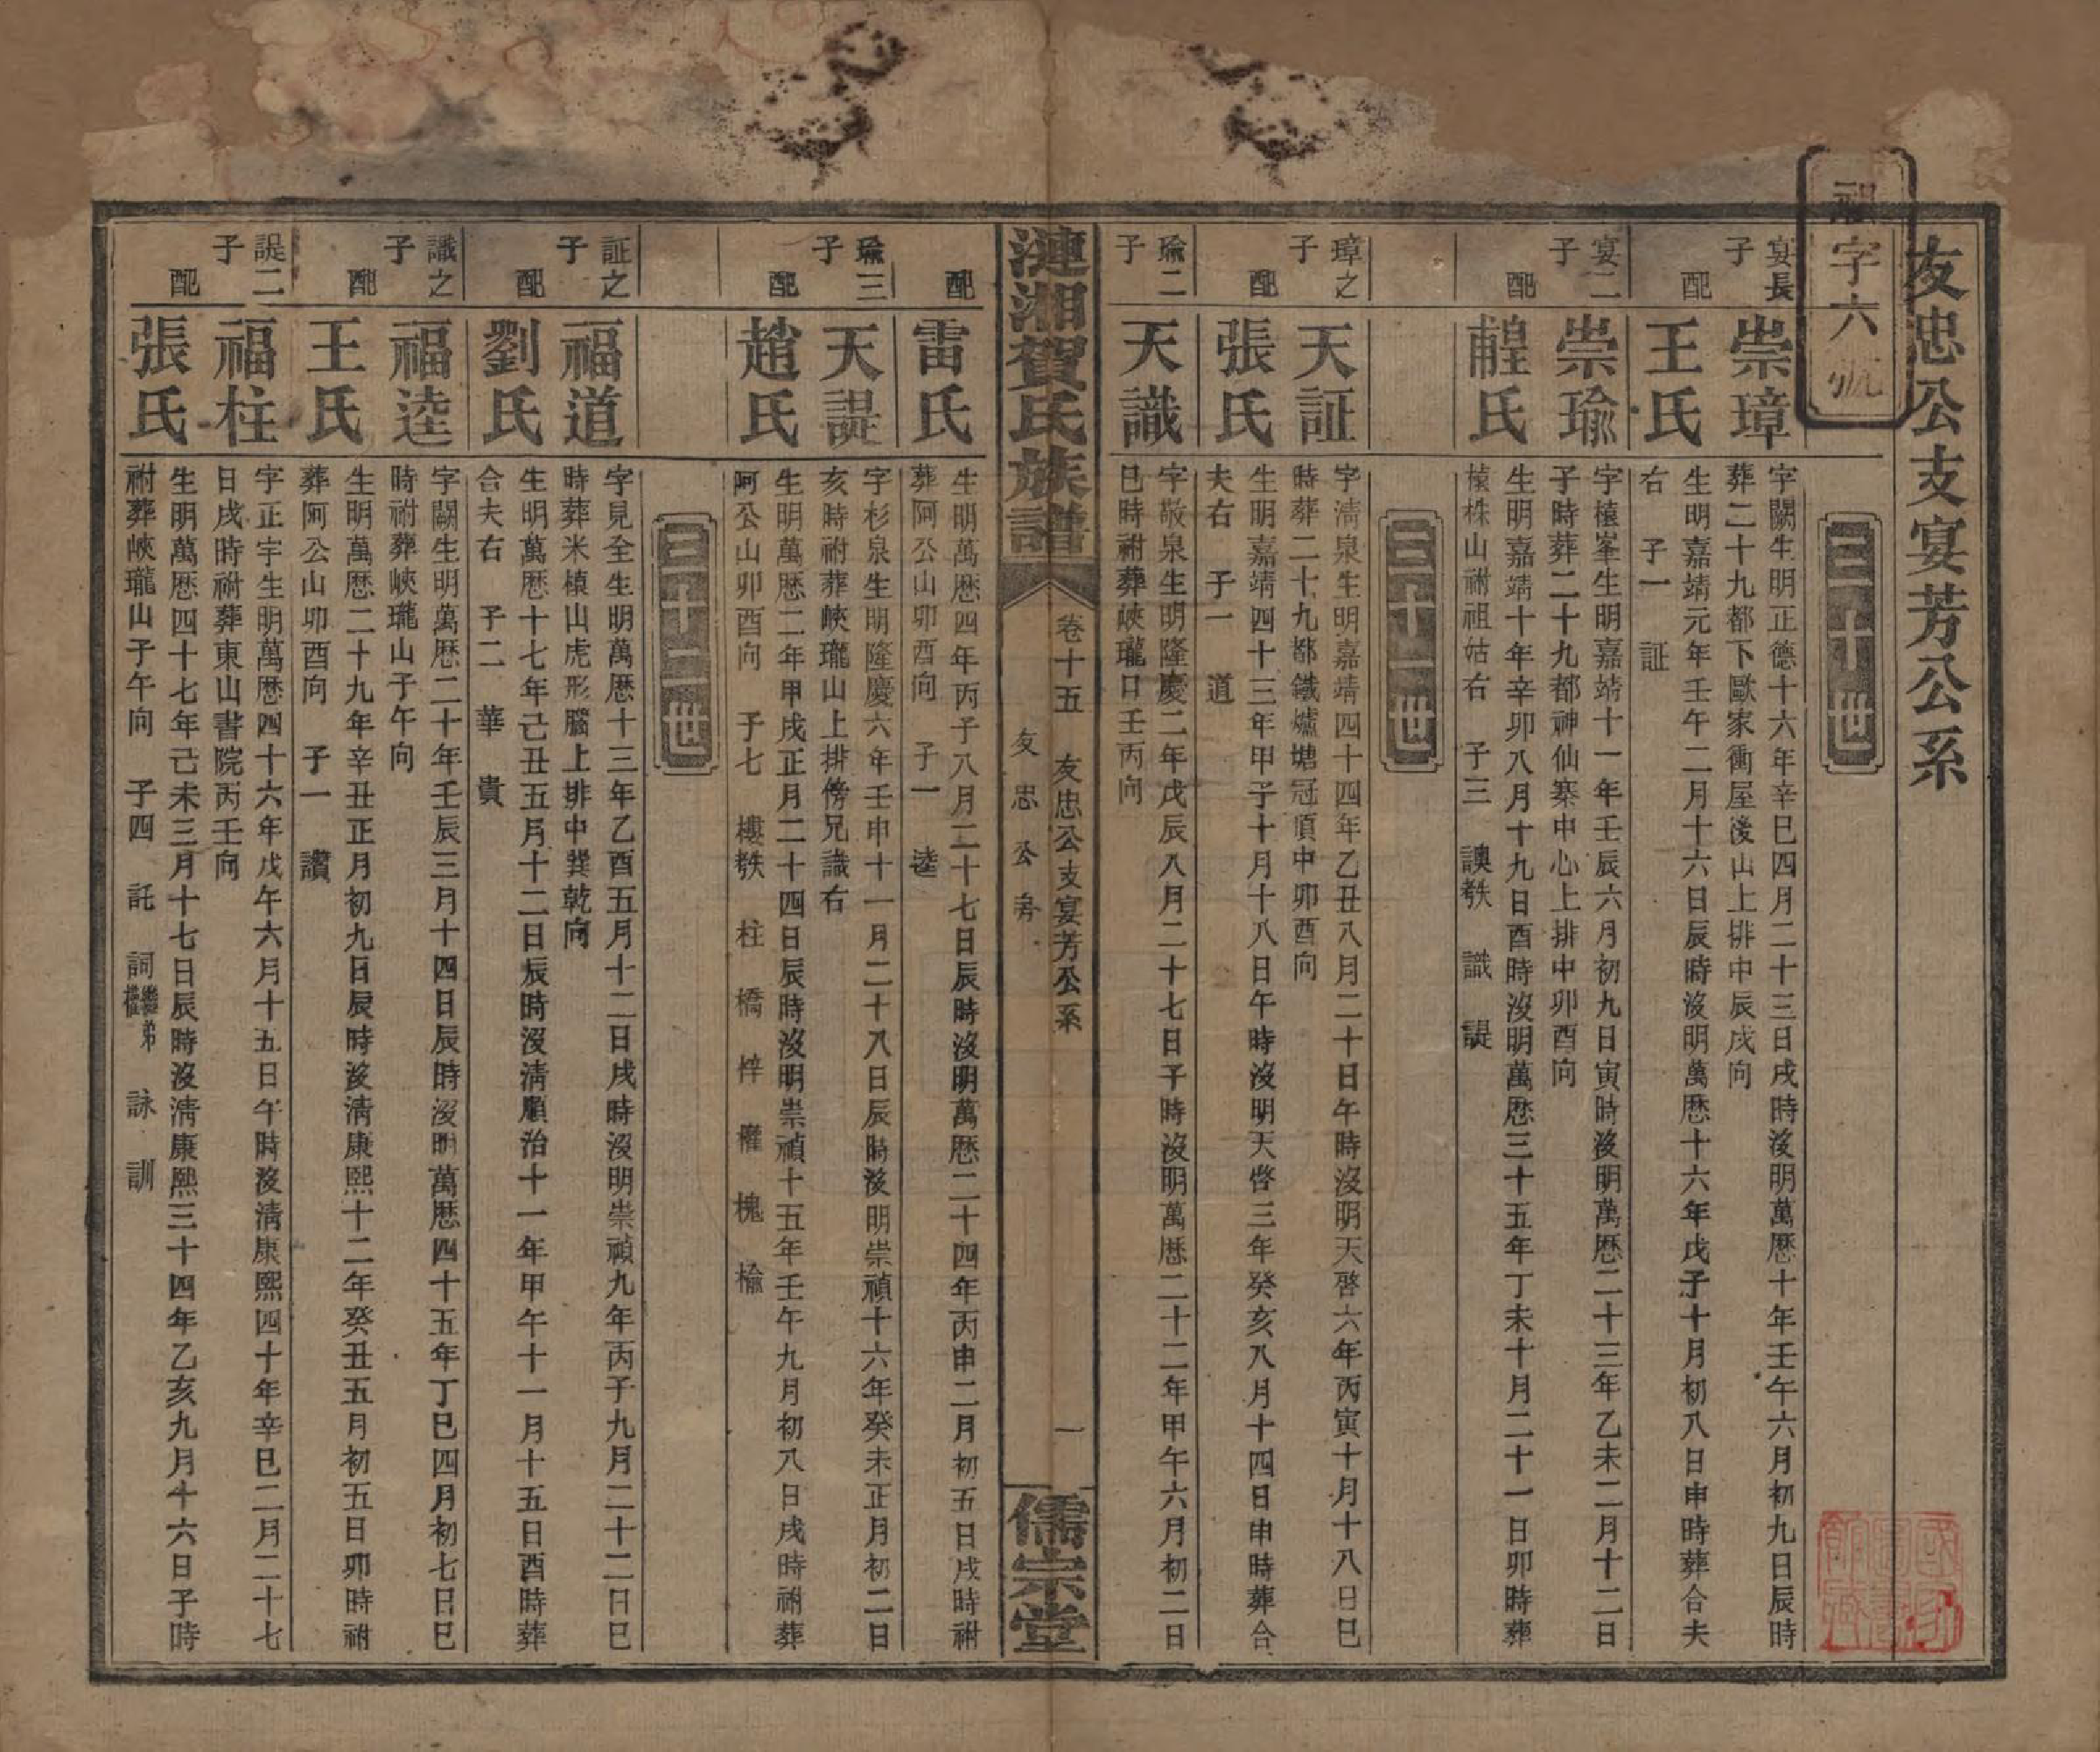 友忠公支宴芳公系
祖字六號
二十世
宴長子
崇璋
字關生明正德十六年辛巳四月二十三日戌時沒明萬歷十年壬午六月初九日辰時
葬二十九都下歐家衝屋後山上排中辰戌向
配
王氏
生明嘉靖元年壬午二月十六日辰時沒明萬歷十六年戊子十月初八日申時葬合夫
右 子一 証
宴二子
崇瑜
字植峯生明嘉靖十一年壬辰六月初九日寅時沒明萬歷二十三年乙未二月十二日
子時葬二十九都神仙寨中心上排中卯酉向
配
氏
生明嘉靖十年辛卯八月十九日酉時沒明萬歷三十五年丁未十月二十一日卯時葬
檀株山祔祖姑右 子三 諛 識 諟
二十一世
璋之子
天証
字清泉生明嘉靖四十四年乙丑八月二十日午時沒明天啓六年丙寅十月十八日巳
時葬二十九都鐵爐塘冠頂中卯酉向
配
張氏
生明嘉靖四十三年甲子十月十八日午時沒明天啓三年癸亥八月十四日申時葬合
夫右 子一 道
瑜二子
天識
字敬泉生明隆慶二年戊辰八月二十七日子時沒明萬歷二十二年甲午六月初二日
巳時祔葬峽瓏口壬丙向
漣湘賀氏族譜
卷十五 友忠公支宴芳公系 一
友忠公房
儒宗堂
配
雷氏
生明萬歷四年丙子八月二十七日辰時沒明萬歷二十四年丙申二月初五日戌時祔
葬阿公山卯酉向 子一 逵
瑜三子
天諟
字杉泉生明隆慶六年壬申十一月二十八日辰時沒明崇禎十六年癸未正月初二日
亥時祔葬峽瓏山上排傍兄識右
配
趙氏
生明萬歷二年甲戌正月二十四日辰時沒明崇禎十五年壬午九月初八日戌時祔葬
阿公山卯酉向 子七 樓 柱 橋 梓 權 槐 榆
二十二世
証之子
福道
字見全生明萬歷十三年乙酉五月十二日戌時沒明崇禎九年丙子九月二十二日巳
時葬米植山虎形腦上排中巽乾向
配
劉氏
生明萬歷十七年己丑五月十二日辰時沒清順治十一年甲午十一月十五日酉時葬
合夫右 子二 華 貴
識之子
福逵
字闢生明萬歷二十年壬辰三月十四日辰時沒明萬歷四十五年丁巳四月初七日巳
時祔葬峽瓏山子午向
配
王氏
生明萬歷二十九年辛丑正月初九日辰時沒清康熙十二年癸丑五月初五日卯時祔
葬阿公山卯酉向 子一 讚
諟二子
福柱
字正宇生明萬歷四十六年戊午六月十五日午時沒清康熙四十年辛巳二月二十七
日戌時祔葬東山書院丙壬向
配
張氏
生明萬歷四十七年己未三月十七日辰時沒清康熙三十四年乙亥九月十六日子時
祔葬峽瓏山子午向 子四 託 詞繼弟權 詠 訓